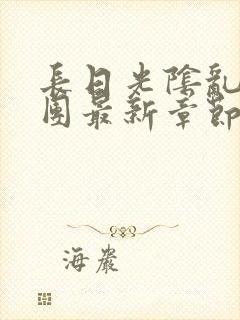 長日光陰亂
團最新章節
海巖